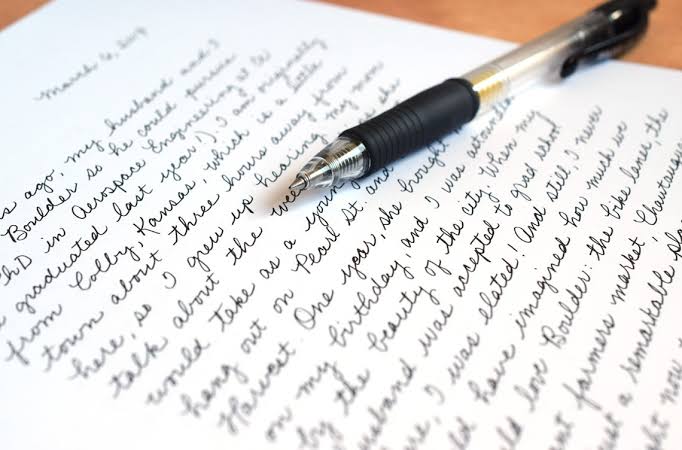 March 6, 2013
ago, my husband and I
Boulder so he could pursue
PhD in Aerospace Engineering at CU
graduated last year!). I am originally
from Colby, Kansas, which is a little
town about three hours away from
here, so I grew up hearing my mom
talk about the she
would take as a young and
hang out on Pearl St. and
Harvest. One year, she brought
on my birthday, and I was astounded
by the beauty of the city. When my
husband was accepted to grad school
I was elated! And still, I never
have imagined how much we
love Boulder: the bike lanes, the
farmers market, Chautauqua
a remarkable
now